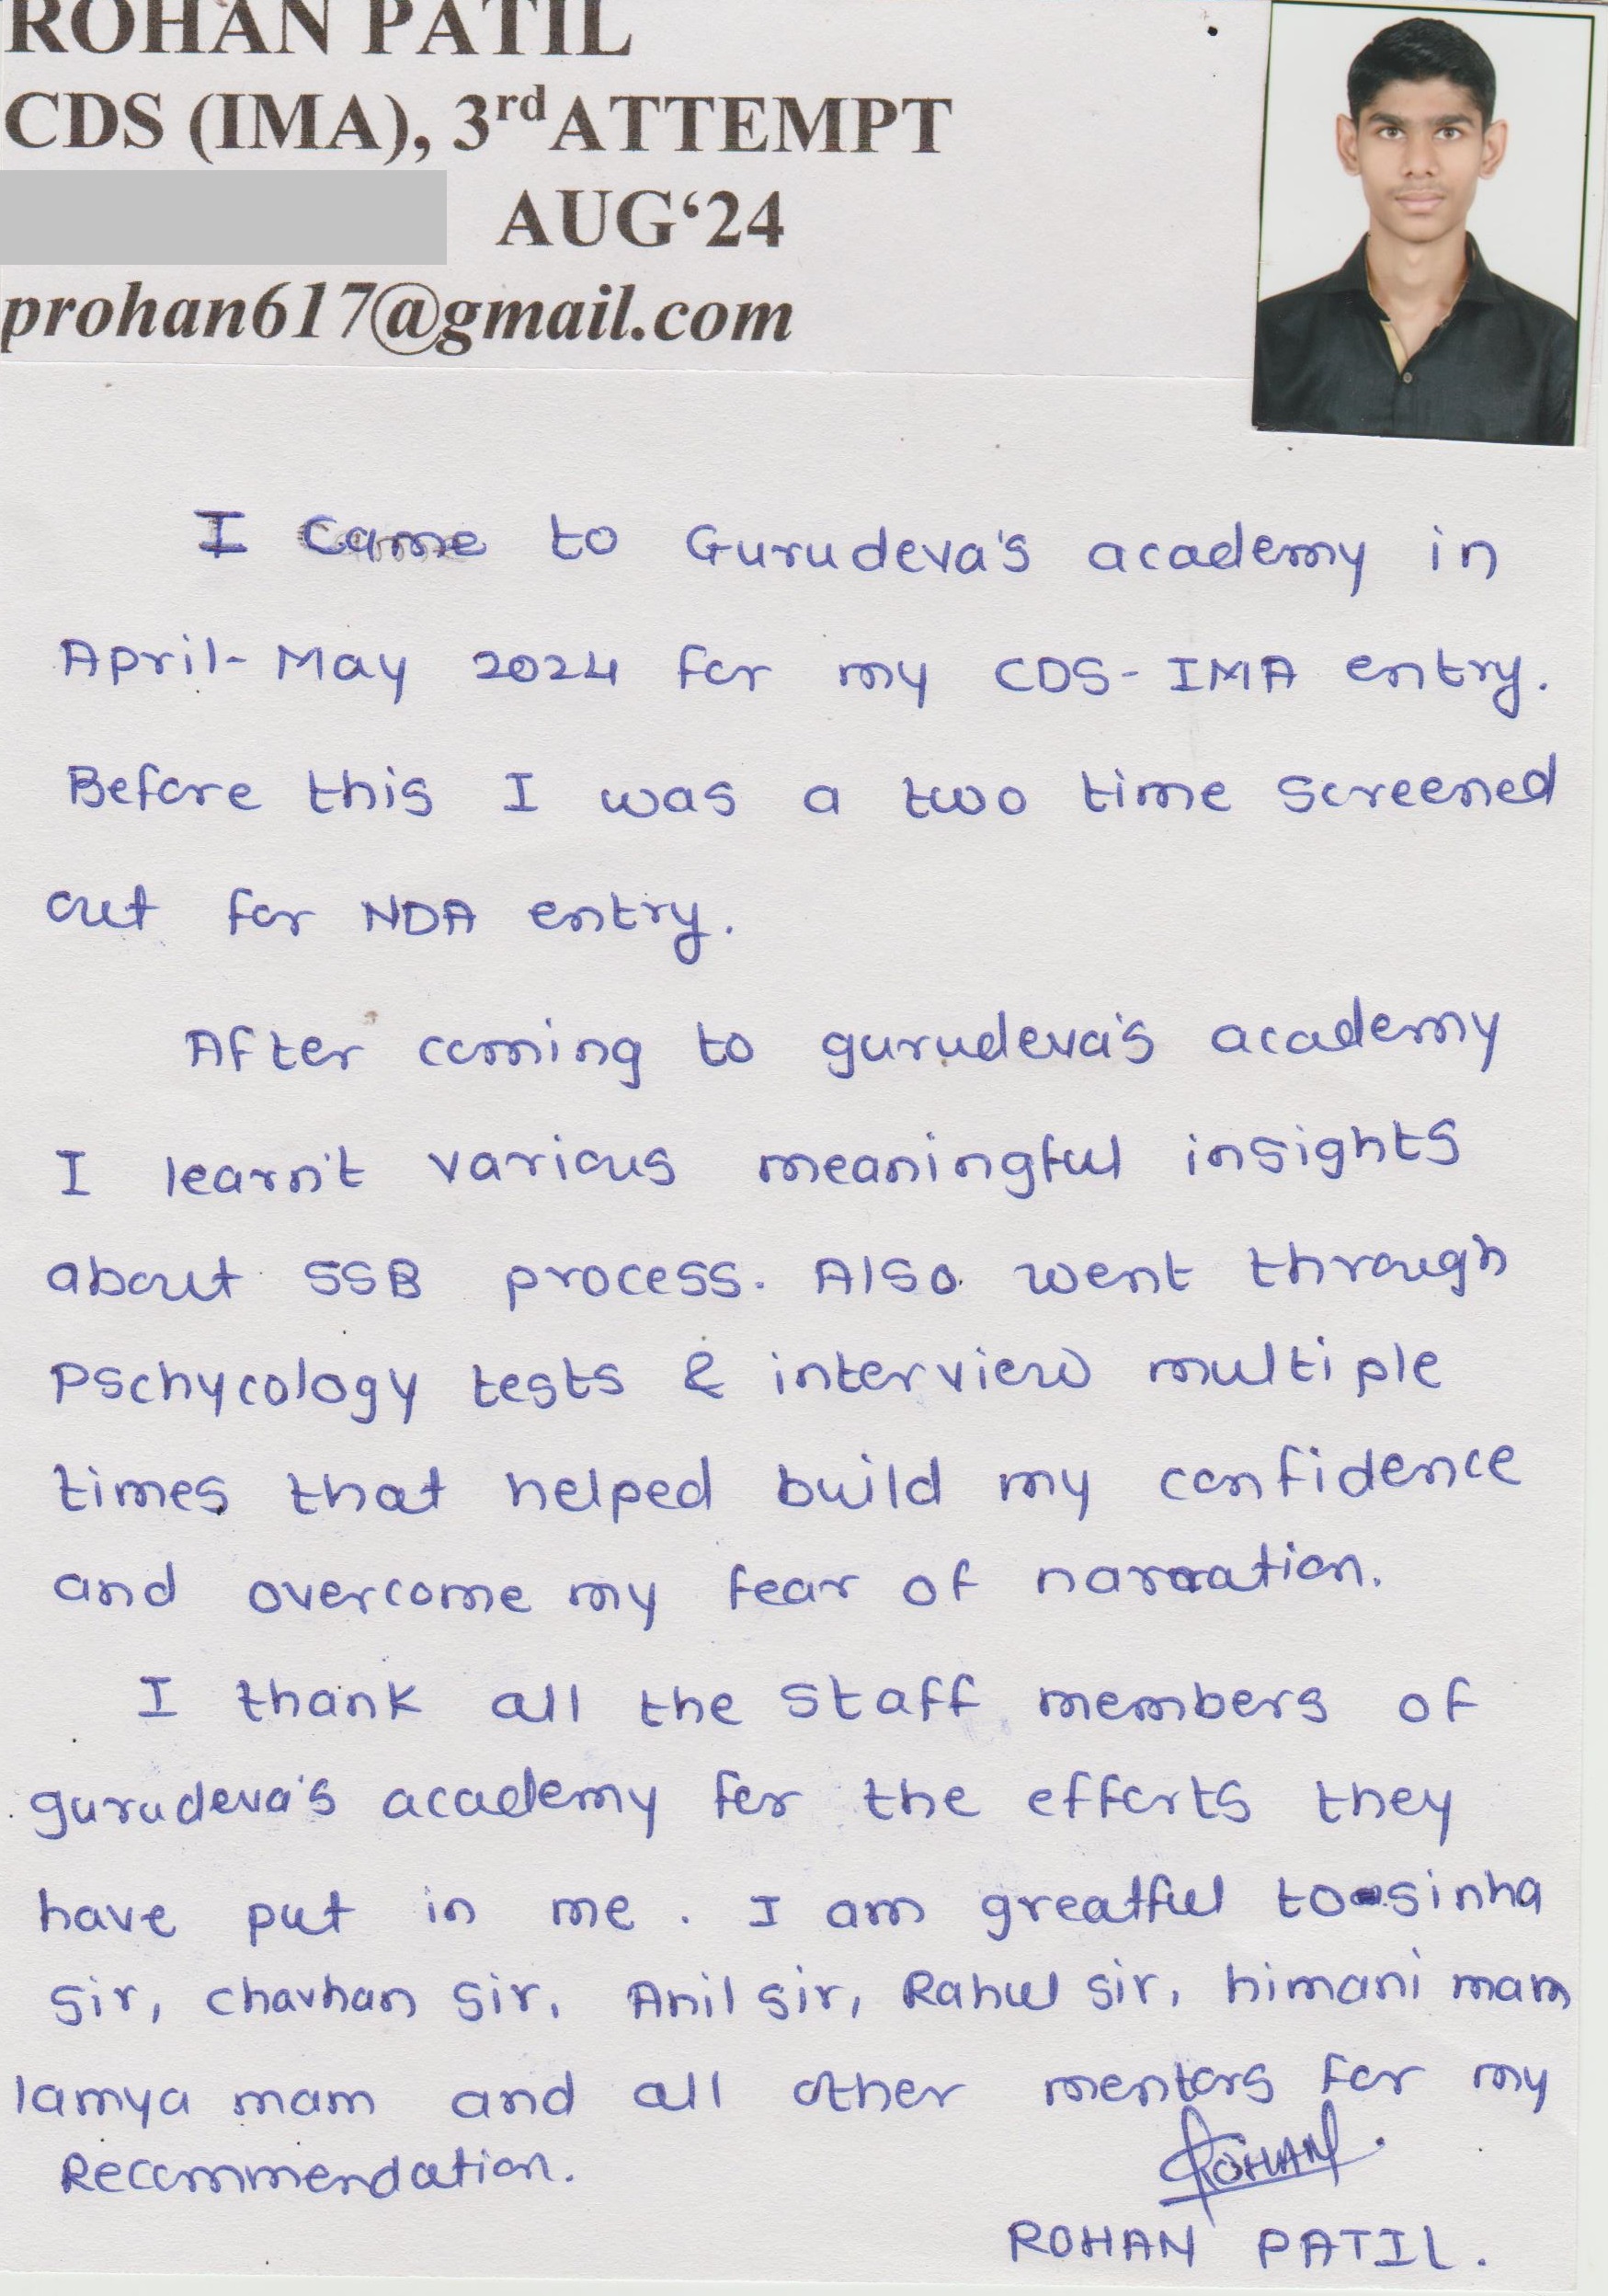 ROHAN PATIL
CDS (IMA), 3rd ATTEMPT
AUG‘24
prohan617@gmail.com
I Came to Gurudeva's academy in
April-May 2024 for my CDS-IMA entry.
Before this I was a two time screened
out for NDA entry.
After coming to gurudeva's academy
I learn't various meaningful insights
about SSB process. Also went through
Pschycology tests & interview multiple
times that helped build my confidence
and overcome my fear of narration.
I thank all the staff members of
gurudeva's academy for the efforts they
have put in me. I am greatful to sinha
sir, chavhan sir, Anil sir, Rahul sir, himani mam
lamya mam and all other mentors for my
Recommendation.
ROHAN
ROHAN PATIL.